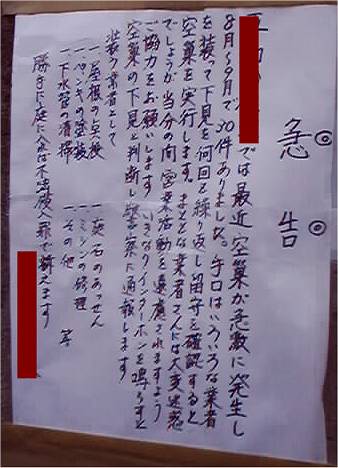 ◎急告◎
では最近空巣が急激に発生し
8月〜9月で30件ありました。手口はいろいろな業者
を装って下見を何回と繰り返し留守を確認すると
空巣を実行します。まともな業者さんには大変迷惑
でしょうが当分の間営業活動を遠慮されますよう
ご協力をお願いします。いきなりインターホンを鳴らすと
空巣の下見と判断し警察に通報します
装う業者として
一屋根の点検 一墓石のあっせん
一ペンキの塗装 一ミシンの修理
一下水管の清掃 一その他 等
勝手に庭に入れば不法侵入罪で訴えます